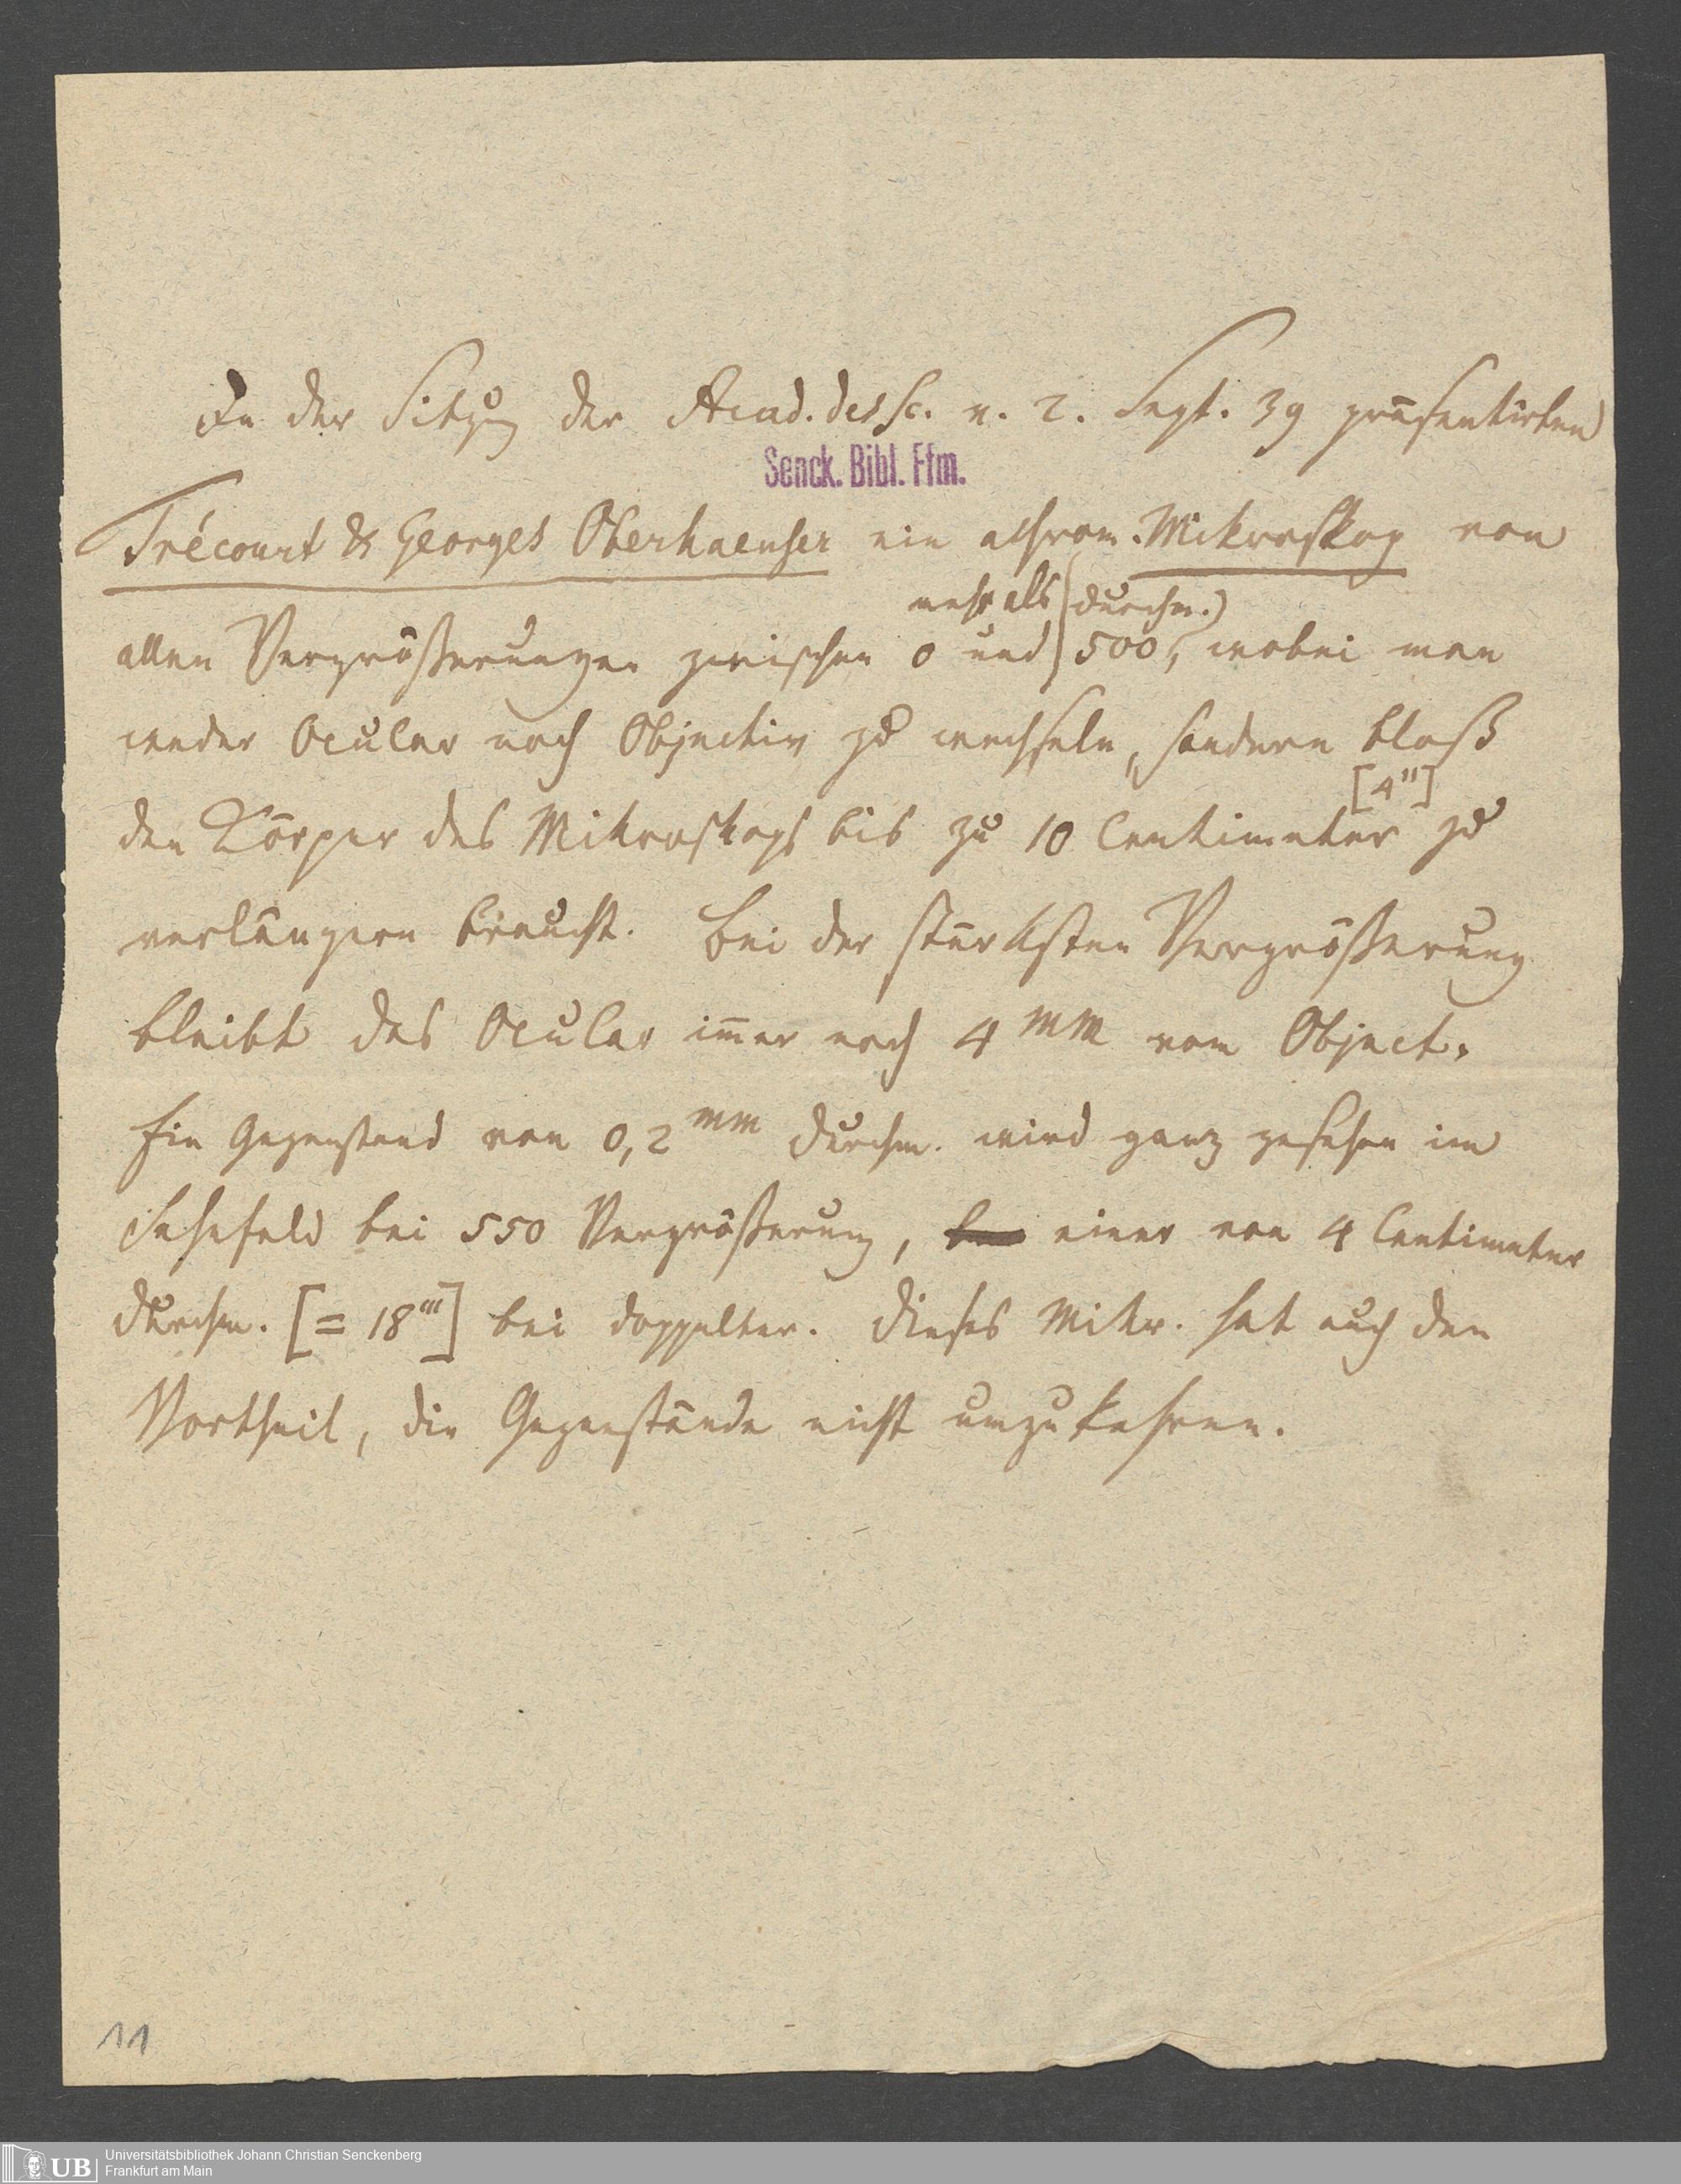 In der Sitzug der Acad. des Sc. v. 2. Sept. 39 präsentirten
Senck. Bibl. Ffm.
Trécourt & Georges Oberhaeuser ein achrom. Mikroskop von
mehr als (Durchm.)
allen Vergrößerungen zwischen 0 und 500, wobei man
weder Ocular noch Objectiv zu wechseln, sondern bloß
[4"]
den Körper des Mikroskops bis zu 10 Centimeter zu
verlängern braucht. Bei der stärksten Vergrößerung
bleibt das Ocular im̄er noch 4 mm vom Object.
Ein Gegenstand von 0,2 mm Durchm. wird ganz gesehen im
Sehefeld bei 550 Vergrößerung, einer von 4 Centimeter
Durchm. [= 18"'] bei doppelter. Dieses Mikr. hat auch den
Vortheil, die Gegenstände nicht umzukehren.
11
UB Universitätsbibliothek Johann Christian Senckenberg
Frankfurt am Main